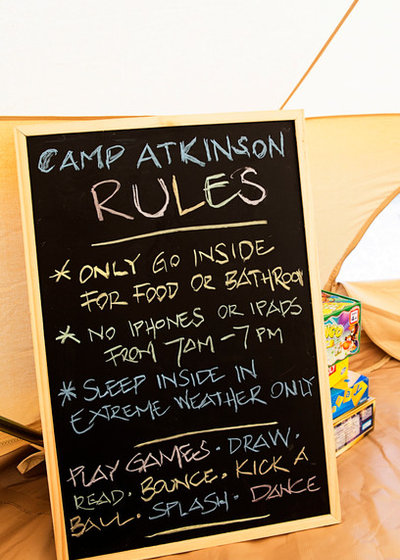 CAMP ATKINSON
RULES
* ONLY GO INSIDE
FOR FOOD OR BATHROOM
* NO IPHONES OR IPADS
FROM 7AM - 7PM
* SLEEP INSIDE IN
EXTREME WEATHER ONLY
PLAY GAMES · DRAW ·
READ · BOUNCE · KICK A
BALL · SPLASH · DANCE